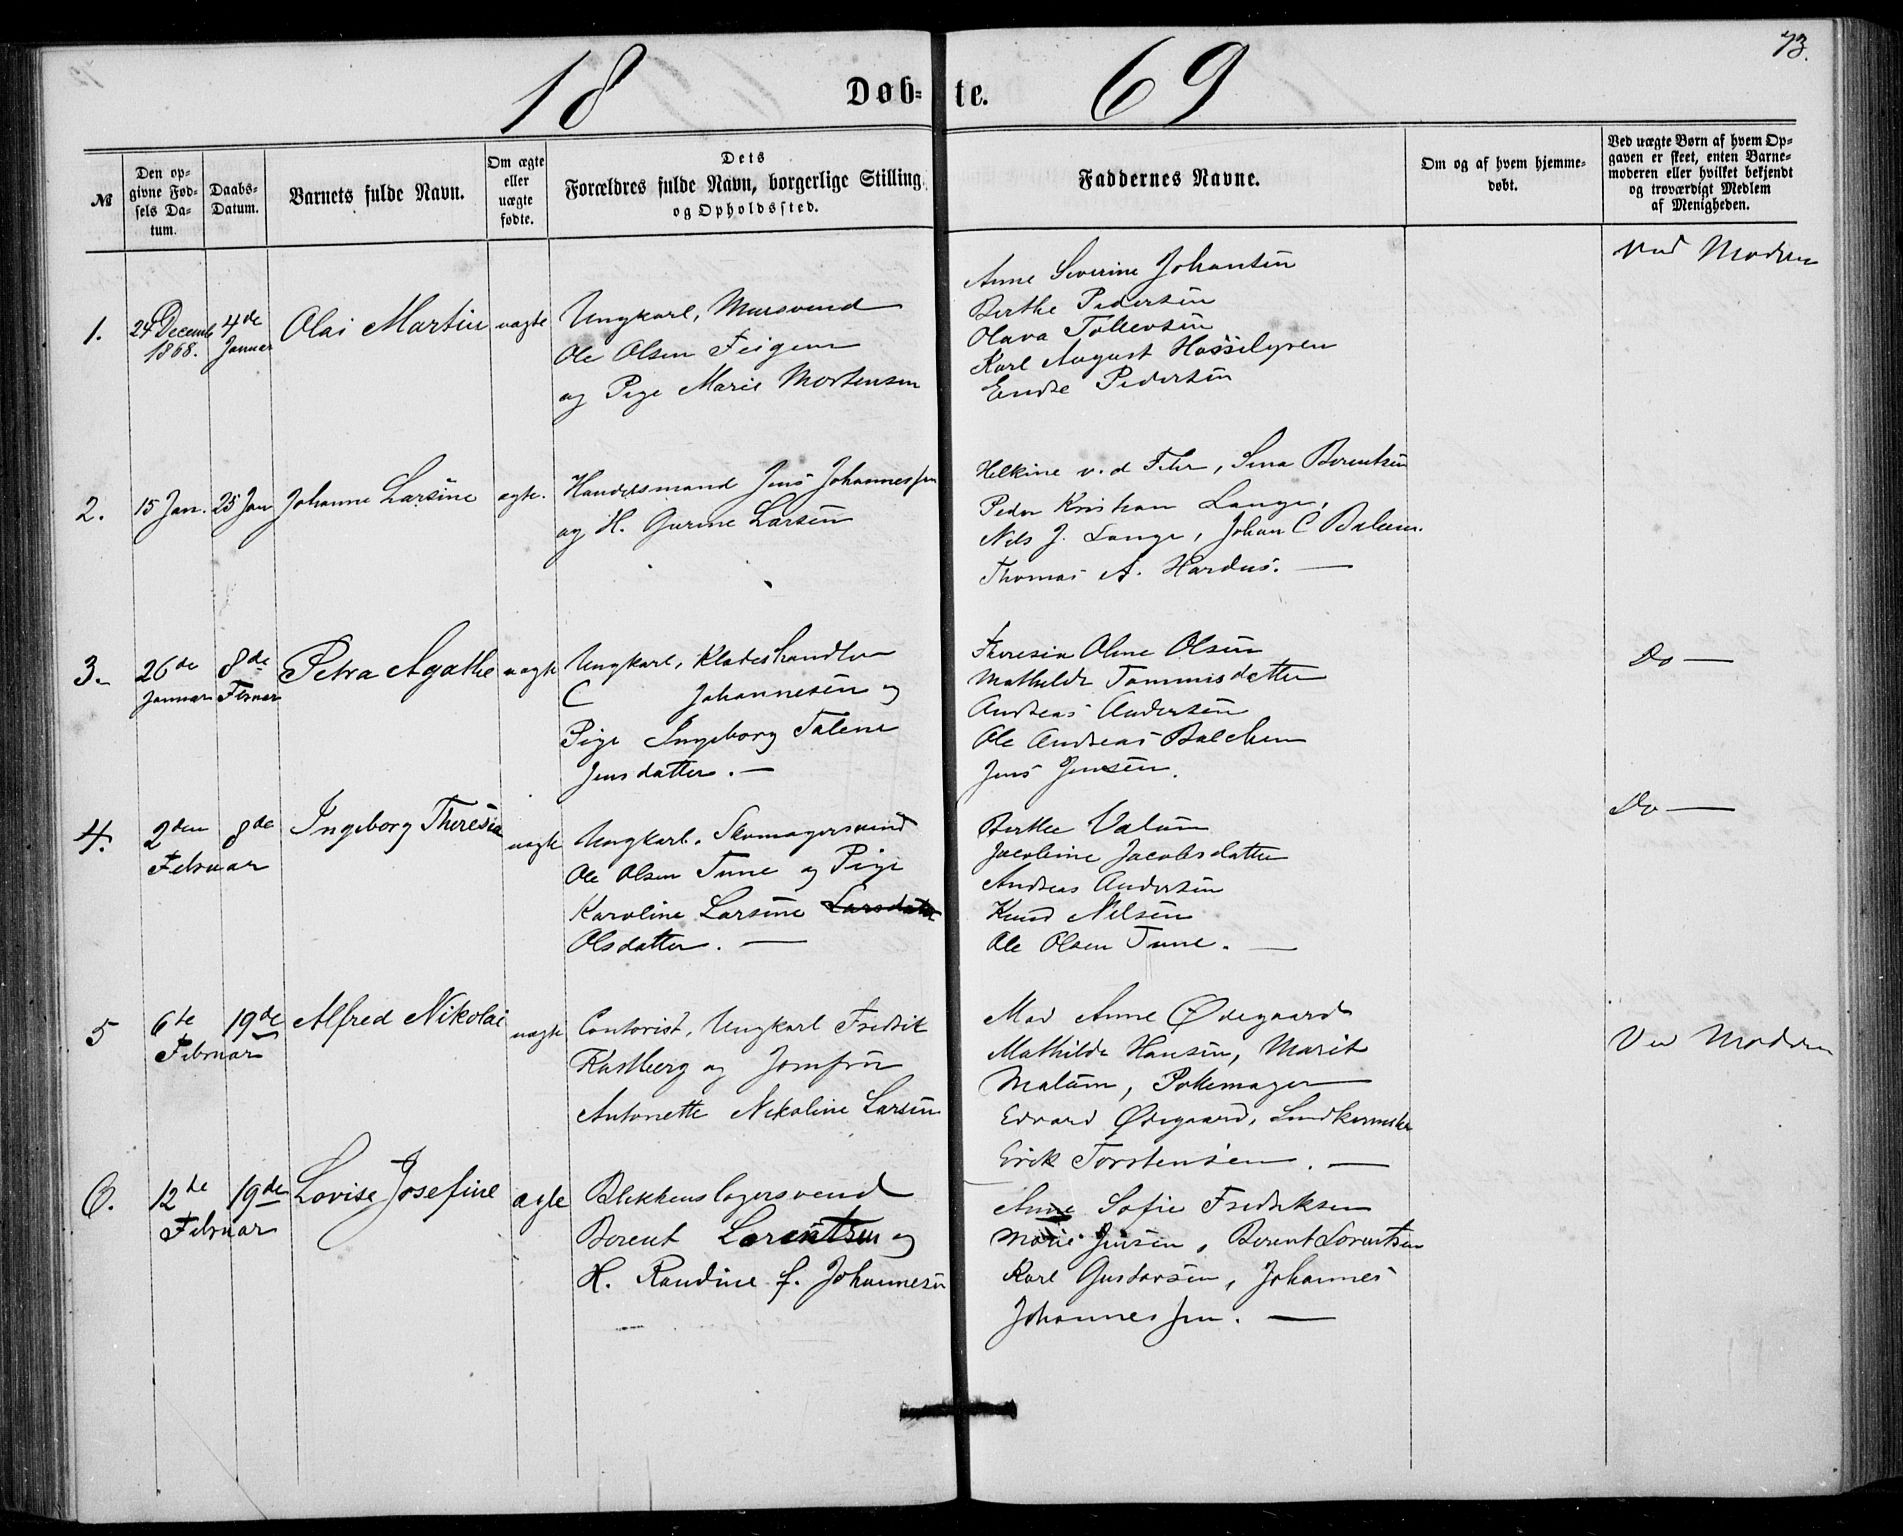 73.
18 Døb- te. 69
№
Den op-
givne Fød-
sels Da-
tum.
Daabs-
Datum.
Barnets fulde Navn.
Om ægte
eller
uægte
fødte.
Dets
Forældres fulde Navn, borgerlige Stilling
og Opholdssted.
Faddernes Navne.
Om og af hvem hjemme-
døbt.
Ved uægte Børn af hvem Op-
gaven er skeet, enten Barne-
moderen eller hvilket bekjendt
og troværdigt Medlem
af Menigheden.
1.
24 Decemb
1868.
4de
Januar
Olai Martin
uægte
Ungkarl, Mursvend
Ole Olsen Feigum
og Pige Marie Mortensen
Anne Severine Johansen
Berthe Pedersen
Olava Tollevsen
Karl August Hasselgren
Endre Pedersen
Ved Modren
2.
15 Jan.
25 Jan
Johanne Larsine
ægte.
Handelsmand Jens Johannessen
og H. Gurine Larsen
Helkine v. d Fehr, Sina Berentsen
Peder Kristian Lange,
Nils J. Lange, Johan C Balcen.
Thomas A. Hardus. —
3.
26de
Januar
8de
Februar
Petra Agathe
uægte
Ungkarl, Klædeshandler
C Johannesen og
Pige Ingeborg Talene
Jensdatter. —
Theresia Oline Olsen
Mathilde Tommisdatter
Andreas Andersen
Ole Andreas Balchen
Jens Jensen.
Do —
4.
2den
Februar
8de
Ingeborg Theresia
uægte
Ungkarl, Skomagersvend
Ole Olsen Tune og Pige
Karoline Larsine Larsdatter
Olsdatter. —
Berthe Valum
Jacobine Jacobsdatter
Andreas Andersen
Knud Nilsen
Ole Olsen Tune. —
Do —
5
6te
Februar
19de
Alfred Nikolai
uægte
Contorist, Ungkarl Fredrik
Kastberg og Jomfru
Antonette Nikoline Larsen
Mad Anne Ødegaard
Mathilde Hansen, Marit
Malum, Pottemager
Edvard Ødegaard,
Erik Torstensen. —
Ved Modren
6.
12de
Februar
19de
Lovise Josefine
ægte
Blikkenslagersvend
Berent Lorentsen og
H. Randine f. Johannesen
Anne Sofie Fredriksen
Marie Jensen, Berent Lorentsen
Karl Gustavsen, Johannes
Johannessen. —